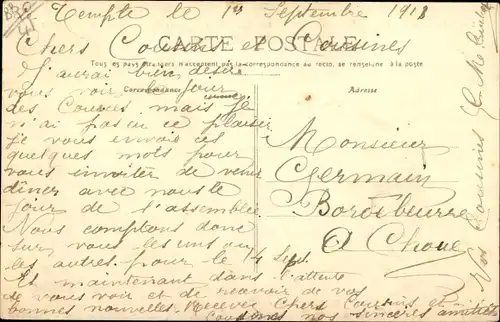 Tempte le 1er Septembre 1913
Chers Cousins et Cousines
CARTE POSTALE
Tous les pays étrangers n'acceptent pas la correspondance au recto, se renseigner à la poste
Correspondance
Adresse
J'aurai bien désiré
vous voir le jour
des Courses mais je
n'ai pas eu ce plaisir
je vous envoie ces
quelques mots pour
vous inviter de venir
dîner avec nous le
jour de l'assemblée
Nous comptons donc
sur vous les uns ou
les autres pour le 14 Sept.
Et maintenant dans l'attente
de vous voir et de recevoir de vos
bonnes nouvelles Recevez Chers Cousins et
Cousines nos sincères amitiés
Vos Cousins
Monsieur
Germain
Bordebeurre
A Choue